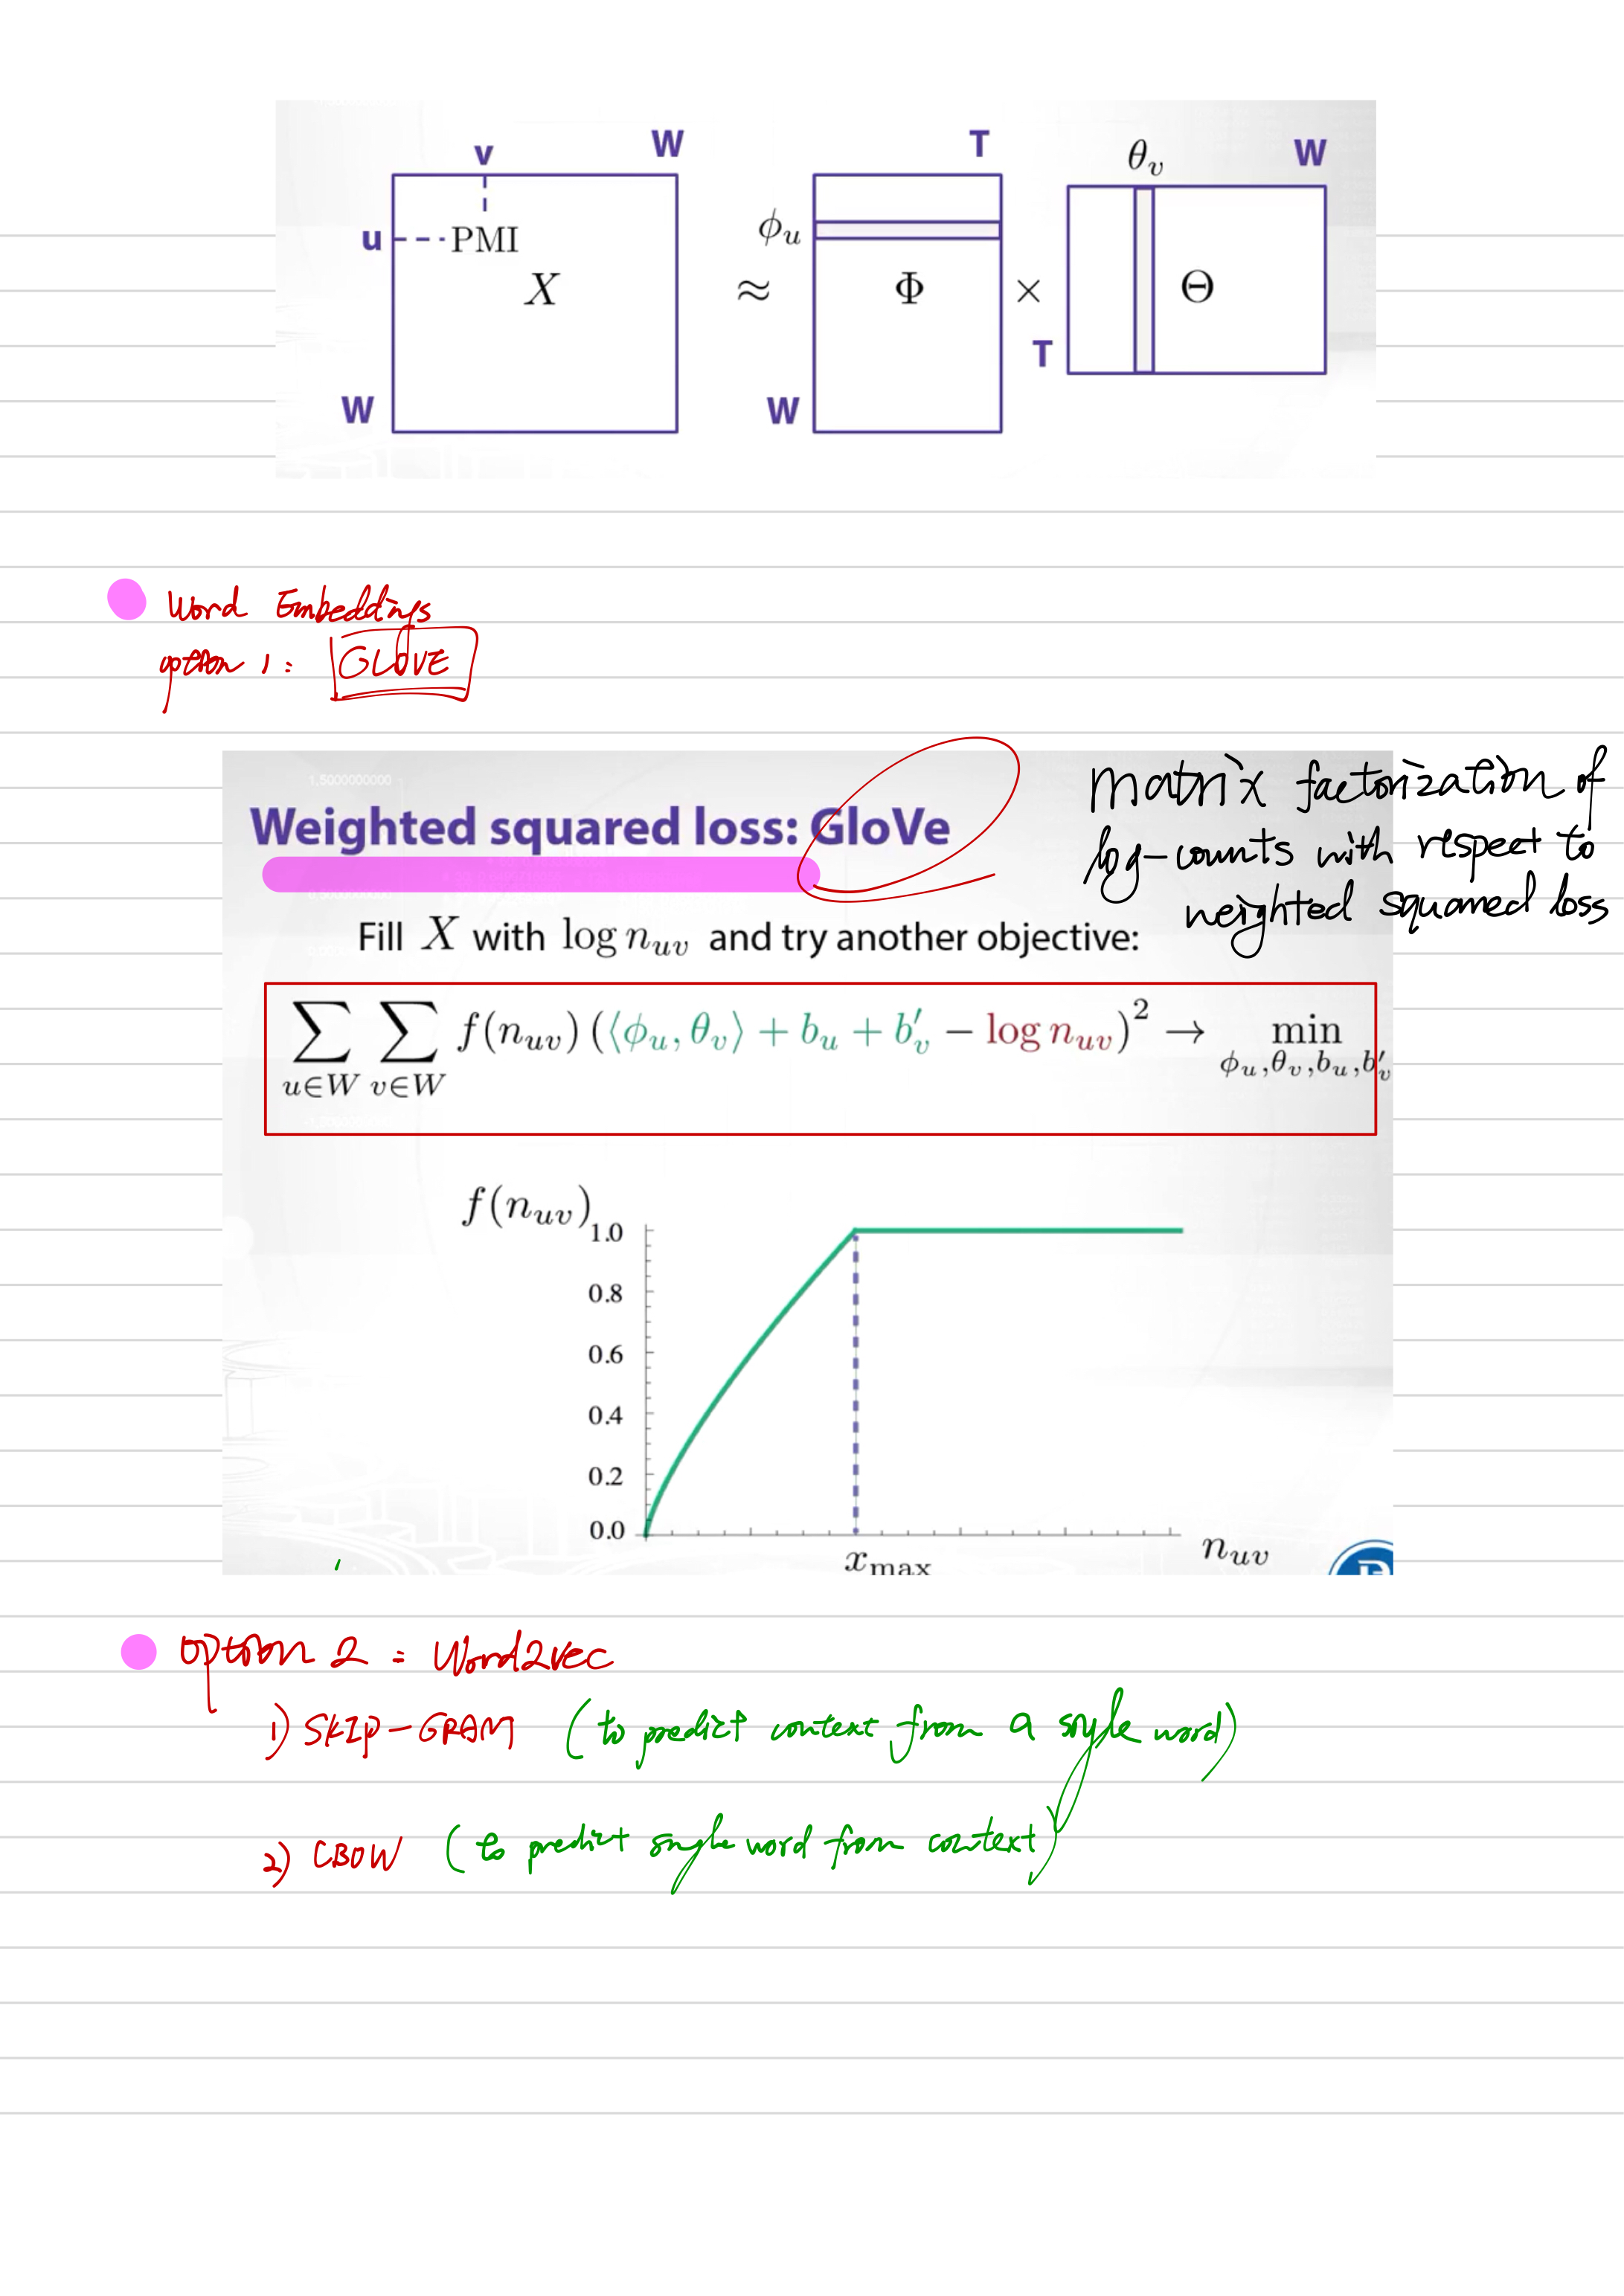 v W T θv W
u PMI ϕu
X ≈ Φ × Θ
T
W W
Word Embeddings
option 1 : GLOVE
1.5000000000
Weighted squared loss: GloVe
matrix factorization of
log-counts with respect to
weighted squared loss
Fill X with log n_uv and try another objective:
∑_{u∈W} ∑_{v∈W} f(n_uv) (⟨ϕ_u, θ_v⟩ + b_u + b′_v − log n_uv)² → min_{ϕ_u,θ_v,b_u,b′_v}
f(n_uv)
1.0
0.8
0.6
0.4
0.2
0.0
x_max n_uv
option 2 = Word2vec
1) SKIP-GRAM (to predict context from a single word)
2) CBOW (to predict single word from context)